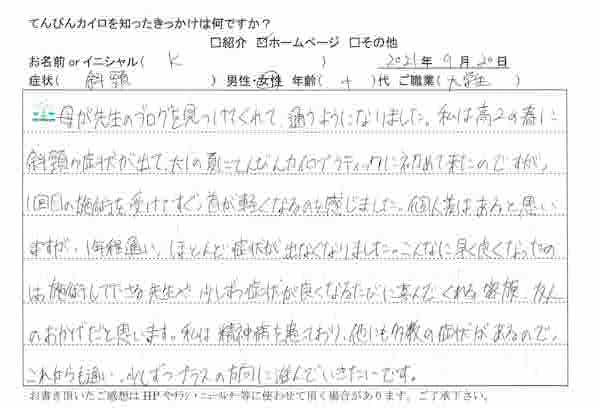 てんびんカイロを知ったきっかけは何ですか？
□紹介 ☑ホームページ □その他
お名前 or イニシャル( K ) 2021年 9月 20日
症状( 斜頸 ) 男性・女性 年齢( + )代 ご職業( 大学生 )
母が先生のブログを見つけてくれて、通うようになりました。私は高2の春に
斜頸の症状が出て、大1の夏にてんびんカイロプラティックに初めて来たのですが、
1回目の施術を受けてすぐ、首が軽くなるのを感じました。個人差はあると思い
ますが、1年程通い、ほとんど症状が出なくなりました。こんなに早く良くなったの
は施術して下さる先生や、少しずつ症状が良くなるたびに喜んでくれる家族、友人
のおかげだと思います。私は精神病を患っており、他にも多数の症状があるので、
これからも通い、少しずつプラスの方向に進んでいきたいです。
お書き頂いたご感想はHPやチラシ・ニュースレター等に使わせて頂く場合があります。ご了承下さい。